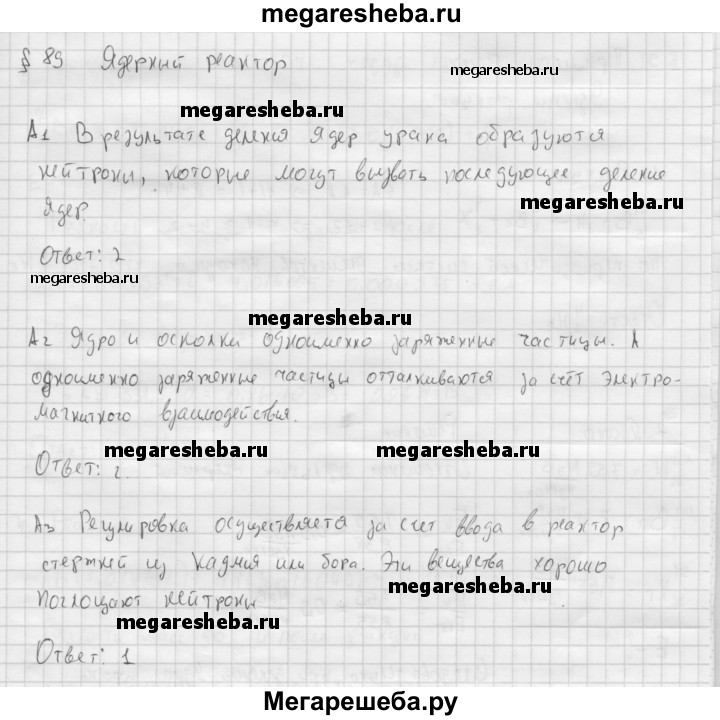 megaresheba.ru
§ 89 Ядерный реактор
megaresheba.ru
megaresheba.ru
А1 В результате деления ядер урана образуются
нейтроны, которые могут вызвать последующее деление
ядер.
megaresheba.ru
Ответ: 2
megaresheba.ru
megaresheba.ru
А2 Ядро и осколки одноименно заряженные частицы. А
одноименно заряженные частицы отталкиваются за счёт электро-
магнитного взаимодействия.
megaresheba.ru megaresheba.ru
Ответ: 2.
А3 Регулировка осуществляется за счет ввода в реактор
стержней из кадмия или бора. Эти вещества хорошо
megaresheba.ru
поглощают нейтроны
megaresheba.ru
Ответ: 1
Мегарешеба.ру